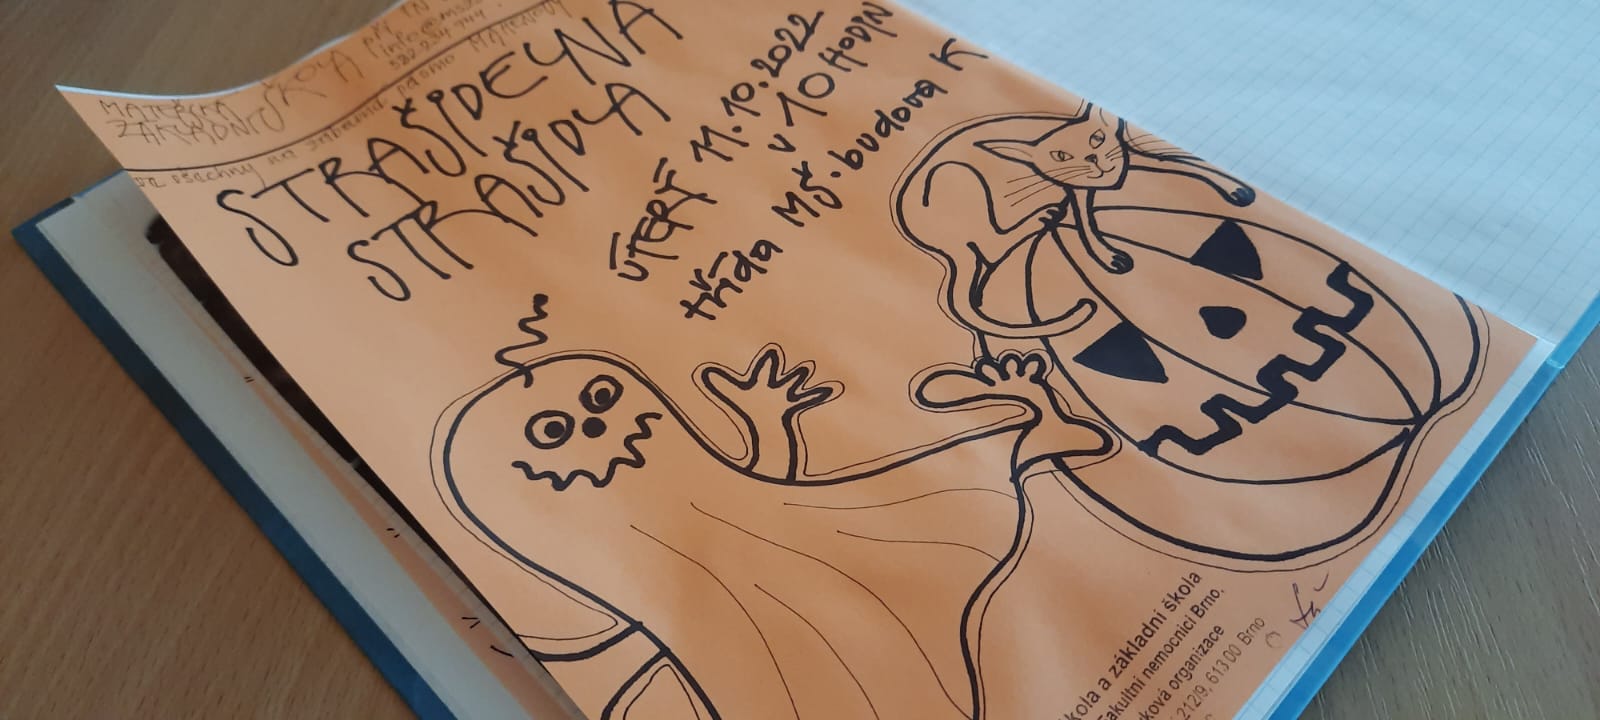 MATEŘSKÁ
ZÁKLADNÍ ŠKOLA při FN
info@ms
532 234 944
všechny na zábavné pásmo
STRAŠIDELNÁ
STRAŠIDLA
ÚTERÝ 11.10.2022
v 10 HODIN
třída MŠ. budova K
škola a základní škola
Fakultní nemocnici Brno,
ková organizace
212/9, 613 00 Brno